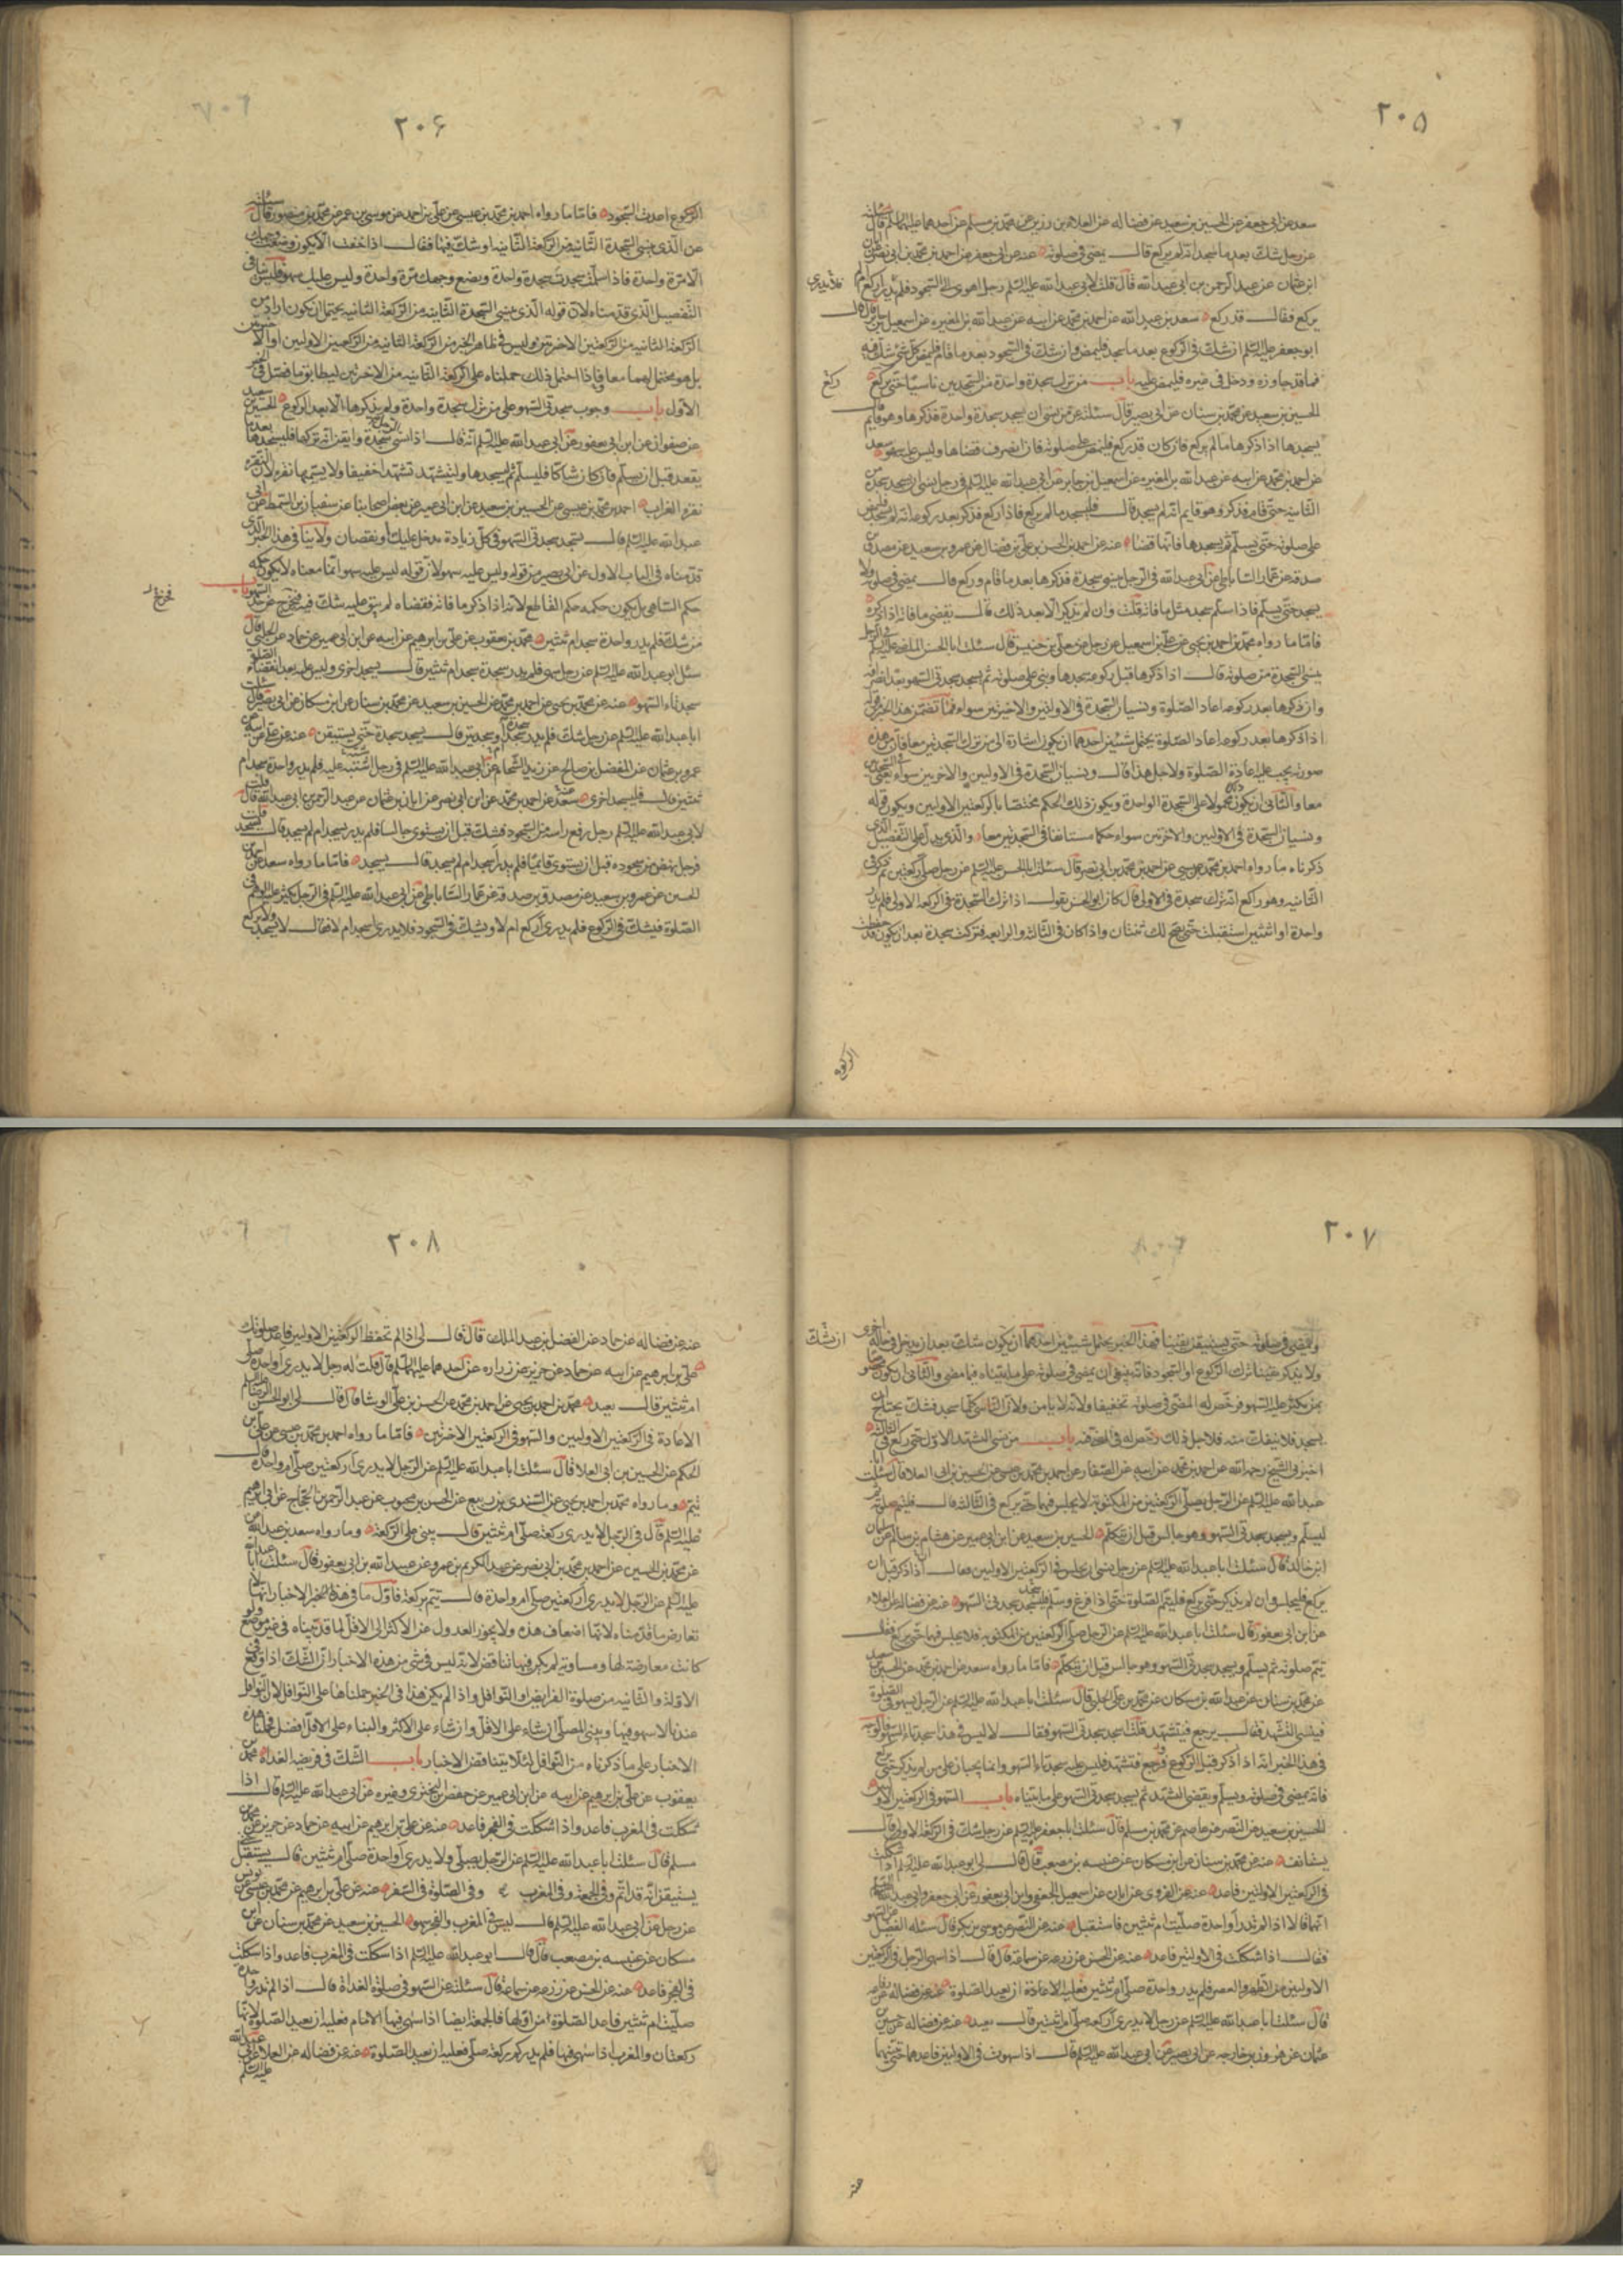 ٢٠٥
سعد عن ابى جعفر عن الحسين بن سعيد عن فضاله عن العلاء بن رزين عن محمد بن مسلم عن احدهما عليهما السلم قال سئلته
عن رجل شك بعد ما سجد انه لم يركع قال يمضى فى صلوته عنه عن ابى جعفر عن احمد بن محمد بن ابى نصر عن ابان
ابن عثمان عن عبد الرحمن بن ابى عبد الله قال قلت لابى عبد الله عليه السلم رجل اهوى الى السجود فلم يدر اركع ام لم
يركع فقال قد ركع سعد بن عبد الله عن احمد بن محمد عن ابيه عن عبد الله بن المغيره عن اسمعيل بن جابر قال قال
ابو جعفر عليه السلم ان شك فى الركوع بعد ما سجد فليمض وان شك فى السجود بعد ما قام فليمض كل شئ شك فيه
مما قد جاوزه ودخل فى غيره فليمض عليه باب من ترك سجدة واحدة من السجدتين ناسيا حتى يركع
الحسين بن سعيد عن محمد بن سنان عن ابى بصير قال سئلته عمن نسى ان يسجد سجدة واحدة فذكرها وهو قايم
يسجدها اذا ذكرها ما لم يركع فان كان قد ركع فليمض على صلوته فاذا انصرف قضاها وليس عليه سهو سعد
عن احمد بن محمد عن ابيه عن عبد الله بن المغيره عن اسمعيل بن جابر عن ابى عبد الله عليه السلم فى رجل نسى ان يسجد سجدة من
الثانية حتى قام فذكر وهو قايم انه لم يسجد قال فليسجد ما لم يركع فاذا ركع فذكر بعد ركوعه انه لم يسجد فليمض
على صلوته حتى يسلم ثم يسجدها فانها قضاء عنه عن احمد بن الحسن بن على بن فضال عن عمرو بن سعيد عن مصدق بن
صدقه عن عمار الساباطى عن ابى عبد الله فى الرجل ينسى سجدة فذكرها بعد ما قام وركع قال يمضى فى صلوته ولا
يسجد حتى يسلم فاذا سلم سجد مثل ما فاته قلت وان لم يذكر الا بعد ذلك قال يقضى ما فاته اذا ذكره
فاما ما رواه محمد بن احمد بن يحيى عن على بن اسمعيل عن رجل عن معلى بن خنيس قال سئلت ابا الحسن الماضى عليه السلم فى الرجل
ينسى السجدة من صلوته قال اذا ذكرها قبل ركوعه سجدها وبنى على صلوته ثم يسجد سجدتى السهو بعد انصرافه
وان ذكرها بعد ركوعه اعاد الصلوة ونسيان السجدة فى الاولتين والاخيرتين سواء فما تضمن هذا الخبر من قوله
اذا ذكرها بعد ركوعه اعاد الصلوة يحتمل شيئين احدهما ان يكون اشارة الى من ترك السجدتين معا فان من هذه
صورته يجب عليه اعادة الصلوة ولاجل هذا قال ونسيان السجدة فى الاولتين والاخرتين سواء يعنى فى السجدتين
معا والثانى ان يكون محمولا على السجدة الواحدة ويكون ذلك الحكم مختصا بالركعتين الاولتين ويكون قوله
ونسيان السجدة فى الاولتين والاخرتين سواء حكما مستانفا فى السجدتين معا والذى يدل على التفصيل الذى
ذكرناه ما رواه احمد بن محمد بن عيسى عن احمد بن محمد بن ابى نصر قال سئلت ابا الحسن عليه السلم عن رجل صلى ركعتين ثم ذكر فى
الثانيه وهو راكع انه ترك سجدة فى الاولى قال كان ابو الحسن يقول اذا ترك السجدة فى الركعه الاولى فلم يدر
واحدة او اثنتين استقبلت حتى يصح لك ثنتان واذا كان فى الثالثه والرابعه فتركت سجدة بعد ان يكون قد حفظت
الركوع
فلا يدرى
ركع
٢٠۶
الركوع اعدت السجود فاما ما رواه احمد بن محمد بن عيسى عن على بن احمد عن موسى بن عمر عن محمد بن منصور قال سئلته
عن الذى ينسى السجدة الثانيه من الركعة الثانيه او شك فيها فقال اذا خفت الا يكون وضعت وجهك
الا مرة واحدة فاذا سلمت سجدت سجدة واحدة وتضع وجهك مرة واحدة وليس عليك سهو فليس ينافى
التفصيل الذى قدمناه لان قوله الذى ينسى السجدة الثانيه من الركعة الثانيه يحتمل ان يكون اراد من
الركعة الثانيه من الركعتين الاخرتين وليس فى ظاهر الخبر من الركعة الثانيه من الركعتين الاولتين او الاخرتين
بل هو محتمل لهما معا فاذا احتمل ذلك حملناه على الركعة الثانيه من الاخرتين ليطابق ما فصل فى الخبر
الاول باب وجوب سجدتى السهو على من ترك سجدة واحدة ولم يذكرها الا بعد الركوع الحسين بن سعيد
عن صفوان عن ابن ابى يعفور عن ابى عبد الله عليه السلم انه قال اذا نسى الرجل سجدة وايقن انه تركها فليسجدها بعد ما
يقعد قبل ان يسلم فان كان شاكا فليسلم ثم ليسجدها وليتشهد تشهدا خفيفا ولا يسميها نقرة لان النقرة
نقرة الغراب احمد بن محمد بن عيسى عن الحسين بن سعيد عن ابن ابى عمير عن بعض اصحابنا عن سفيان بن السمط عن ابى
عبد الله عليه السلم قال تسجد سجدتى السهو فى كل زيادة تدخل عليك او نقصان ولا ينافى هذا الخبر الذى
قدمناه فى الباب الاول عن ابى بصير من قوله وليس عليه سهو لان قوله ليس عليه سهو انما معناه لا يكون حكمه
حكم الساهى بل يكون حكمه حكم القاطع لانه اذا ذكر ما فاته فقضاه لم يبق عليه شك فيه فخرج عن حد السهو باب
من شك فلم يدر واحدة سجد ام ثنتين محمد بن يعقوب عن على بن ابرهيم عن ابيه عن ابن ابى عمير عن حماد عن الحلبى قال
سئل ابو عبد الله عليه السلم عن رجل سهى فلم يدر سجدة سجد ام ثنتين قال يسجد اخرى وليس عليه بعد انقضاء الصلوة
سجدتاء السهو عنه عن محمد بن يحيى عن احمد بن محمد عن الحسين بن سعيد عن محمد بن سنان عن ابن مسكان عن ابى بصير قال سئلت
ابا عبد الله عليه السلم عن رجل شك فلم يدر سجدة سجد او سجدتين قال يسجد سجدة حتى يستيقن عنه عن على بن ابرهيم عن
عمرو بن عثمان عن المفضل بن صالح عن زيد الشحام عن ابى عبد الله عليه السلم فى رجل اشتبه عليه فلم يدر واحدة سجد ام
ثنتين قال فليسجد اخرى سعد عن احمد بن محمد عن ابن ابى نصر عن ابان بن عثمان عن عبد الرحمن بن ابى عبد الله قال قلت
لابى عبد الله عليه السلم رجل رفع راسه من السجود فشك قبل ان يستوى جالسا فلم يدر سجد ام لم يسجد قال يسجد قلت
فرجل نهض من سجوده قبل ان يستوى قائما فلم يدر اسجد ام لم يسجد قال يسجد فاما ما رواه سعد عن احمد بن
الحسن عن عمرو بن سعيد عن مصدق بن صدقه عن عمار الساباطى عن ابى عبد الله عليه السلم فى الرجل يكثر عليه الوهم فى
الصلوة فيشك فى الركوع فلم يدرى اركع ام لا ويشك فى السجود فلا يدرى اسجد ام لا فقال لا يسجد ولا يركع
٢٠٧
ويمضى فى صلوته حتى يستيقن يقينا فهذا الخبر يحتمل شيئين احدهما ان يكون شك بعد ان يدخل فى حالة اخرى
ولا يذكر يقينا ترك الركوع او السجود فانه ينبغى ان يمضى فى صلوته على ما بيناه فيما مضى والثانى ان يكون مختصا
بمن يكثر عليه السهو فرخص له المضى فى صلوته تخفيفا ولانه لا يامن ولان الناسى كلما سجد فشك يحتاج ان
يسجد فلا ينفك منه فلاجل ذلك رخص له فى المضى فيه باب من نسى التشهد الاول حتى ركع فى الثالثه
اخبرنى الشيخ رحمه الله عن احمد بن محمد عن ابيه عن الصفار عن احمد بن محمد بن عيسى عن الحسين بن ابى العلا قال سئلت ابا
عبد الله عليه السلم عن الرجل يصلى الركعتين من المكتوبة لا يجلس فيهما حتى يركع فى الثالثه قال فليتم صلوته ثم
ليسلم ويسجد سجدتى السهو وهو جالس قبل ان يتكلم الحسين بن سعيد عن ابن ابى عمير عن هشام بن سالم عن سليمان
ابن خالد قال سئلت ابا عبد الله عليه السلم عن رجل نسى ان يجلس فى الركعتين الاولتين فقال ان ذكر قبل ان
يركع فليجلس وان لم يذكر حتى يركع فليتم الصلوة حتى اذا فرغ وسلم فليسجد سجدتى السهو عنه عن فضاله عن العلاء
عن ابن ابى يعفور قال سئلت ابا عبد الله عليه السلم عن الرجل صلى الركعتين من المكتوبه فلا يجلس فيهما حتى يركع فقال
يتم صلوته ثم يسلم ويسجد سجدتى السهو وهو جالس قبل ان يتكلم فاما ما رواه سعد عن احمد بن محمد عن الحسين بن سعيد
عن محمد بن سنان عن عبد الله بن مسكان عن محمد بن على الحلبى قال سئلت ابا عبد الله عليه السلم عن الرجل يسهو فى الصلوة
فينسى التشهد فقال يرجع فيتشهد قلت ايسجد سجدتى السهو فقال لا ليس فى هذا سجدتاء السهو فالوجه
فى هذا الخبر انه اذا ذكر قبل الركوع ورجع فتشهد فليس عليه سجدتاء السهو وانما يجبان على من لم يذكر حتى يركع
فانه يمضى فى صلوته ويسلم ويقضى التشهد ثم يسجد سجدتى السهو على ما بيناه باب السهو فى الركعتين الاولتين
الحسين بن سعيد عن النضر عن عاصم عن محمد بن مسلم قال سئلت ابا جعفر عليه السلم عن رجل شك فى الركعة الاولى قال
يستانف عنه عن محمد بن سنان عن ابن مسكان عن عنبسه بن مصعب قال قال لى ابو عبد الله عليه السلم اذا شككت
فى الركعتين الاولتين فاعد عنه عن القروى عن ابان عن اسمعيل الجعفى وابن ابى يعفور عن ابى جعفر وابى عبد الله عليهما السلم
انهما قالا اذا لم تدر اواحدة صليت ام ثنتين فاستقبل عنه عن النضر عن موسى بن بكر قال سئله الفضيل عن السهو
فقال اذا شككت فى الاولتين فاعد عنه عن الحسن عن زرعه عن سماعه قال قال اذا سهى الرجل فى الركعتين
الاولتين من الظهر والعصر فلم يدر واحدة صلى ام ثنتين فعليه الاعادة ان يعيد الصلوة عنه عن فضاله عن رفاعه
قال سئلت ابا عبد الله عليه السلم عن رجل لا يدرى اركعه صلى ام ثنتين قال يعيد عنه عن فضاله عن حسين بن
عثمان عن هرون بن خارجه عن ابى بصير عن ابى عبد الله عليه السلم قال اذا سهوت فى الاولتين فاعدهما حتى تثبتهما
عنه
٢٠٨
عنه عن فضاله عن حماد عن الفضل بن عبد الملك قال قال لى اذا لم تحفظ الركعتين الاولتين فاعد صلوتك
على بن ابرهيم عن ابيه عن حماد عن حريز عن زراره عن احدهما عليهما السلم قال قلت له رجل لا يدرى اواحدة صلى
ام ثنتين قال يعيد محمد بن احمد بن يحيى عن احمد بن محمد عن الحسن بن على الوشا قال قال لى ابو الحسن الرضا عليه السلم
الاعادة فى الركعتين الاولتين والسهو فى الركعتين الاخرتين فاما ما رواه احمد بن محمد بن عيسى عن على بن
الحكم عن الحسين بن ابى العلا قال سئلت ابا عبد الله عليه السلم عن الرجل لا يدرى اركعتين صلى ام واحدة قال
يتم وما رواه محمد بن احمد بن يحيى عن السندى بن ربيع عن الحسن بن محبوب عن عبد الرحمن بن الحجاج عن ابى ابرهيم
عليه السلم قال فى الرجل لا يدرى ركعة صلى ام ثنتين قال يبنى على الركعة وما رواه سعد بن عبد الله عن
عن محمد بن الحسين عن احمد بن محمد بن ابى نصر عن عبد الكريم بن عمرو عن عبد الله بن ابى يعفور قال سئلت ابا عبد الله
عليه السلم عن الرجل لا يدرى اركعتين صلى ام واحدة قال يتم بركعة فاول ما فى هذه الاخبار انها لا
تعارض ما قدمناه لانها اضعاف هذه ولا يجوز العدول عن الاكثر الى الاقل لما قد بيناه فى غير موضع ولو
كانت معارضة لها ومساوية لم يكن فيها تناقض لانه ليس فى شئ من هذه الاخبار ان الشك اذا وقع فى
الاولة والثانيه من صلوة الفرايض او النوافل واذا لم يكن هذا فى الخبر حملناها على النوافل لان النوافل
عندنا لا سهو فيها ويبنى المصلى ان شاء على الاقل وان شاء على الاكثر والبناء على الاقل افضل فحملنا هذه
الاخبار على ما ذكرناه من النوافل لئلا يتناقض الاخبار باب الشك فى فريضه الغداة محمد بن
يعقوب عن على بن ابرهيم عن ابيه عن ابن ابى عمير عن حفص بن البخترى وغيره عن ابى عبد الله عليه السلم قال اذا
شككت فى المغرب فاعد واذا شككت فى الفجر فاعد عنه عن على بن ابرهيم عن ابيه عن حماد عن حريز عن محمد بن
مسلم قال سئلت ابا عبد الله عليه السلم عن الرجل يصلى ولا يدرى اواحدة صلى ام ثنتين قال يستقبل حتى
يستيقن انه قد اتم وفى الجمعة وفى المغرب وفى الصلوة فى السفر عنه عن على بن ابرهيم عن محمد بن عيسى عن يونس
عن رجل عن ابى عبد الله عليه السلم قال ليس فى المغرب والفجر سهو الحسين بن سعيد عن محمد بن سنان عن ابن
مسكان عن عنبسه بن مصعب قال قال ابو عبد الله عليه السلم اذا شككت فى المغرب فاعد واذا شككت
فى الفجر فاعد عنه عن الحسن عن زرعه عن سماعة قال سئلته عن السهو فى صلوة الغداة قال اذا لم تدر واحدة
صليت ام ثنتين فاعد الصلوة من اولها والجمعة ايضا اذا سهى فيها الامام فعليه ان يعيد الصلوة لانها
ركعتان والمغرب اذا سهى فيها فلم يدر كم ركعة صلى فعليه ان يعيد الصلوة عنه عن فضاله عن العلا عن ابى عبد الله عليه السلم